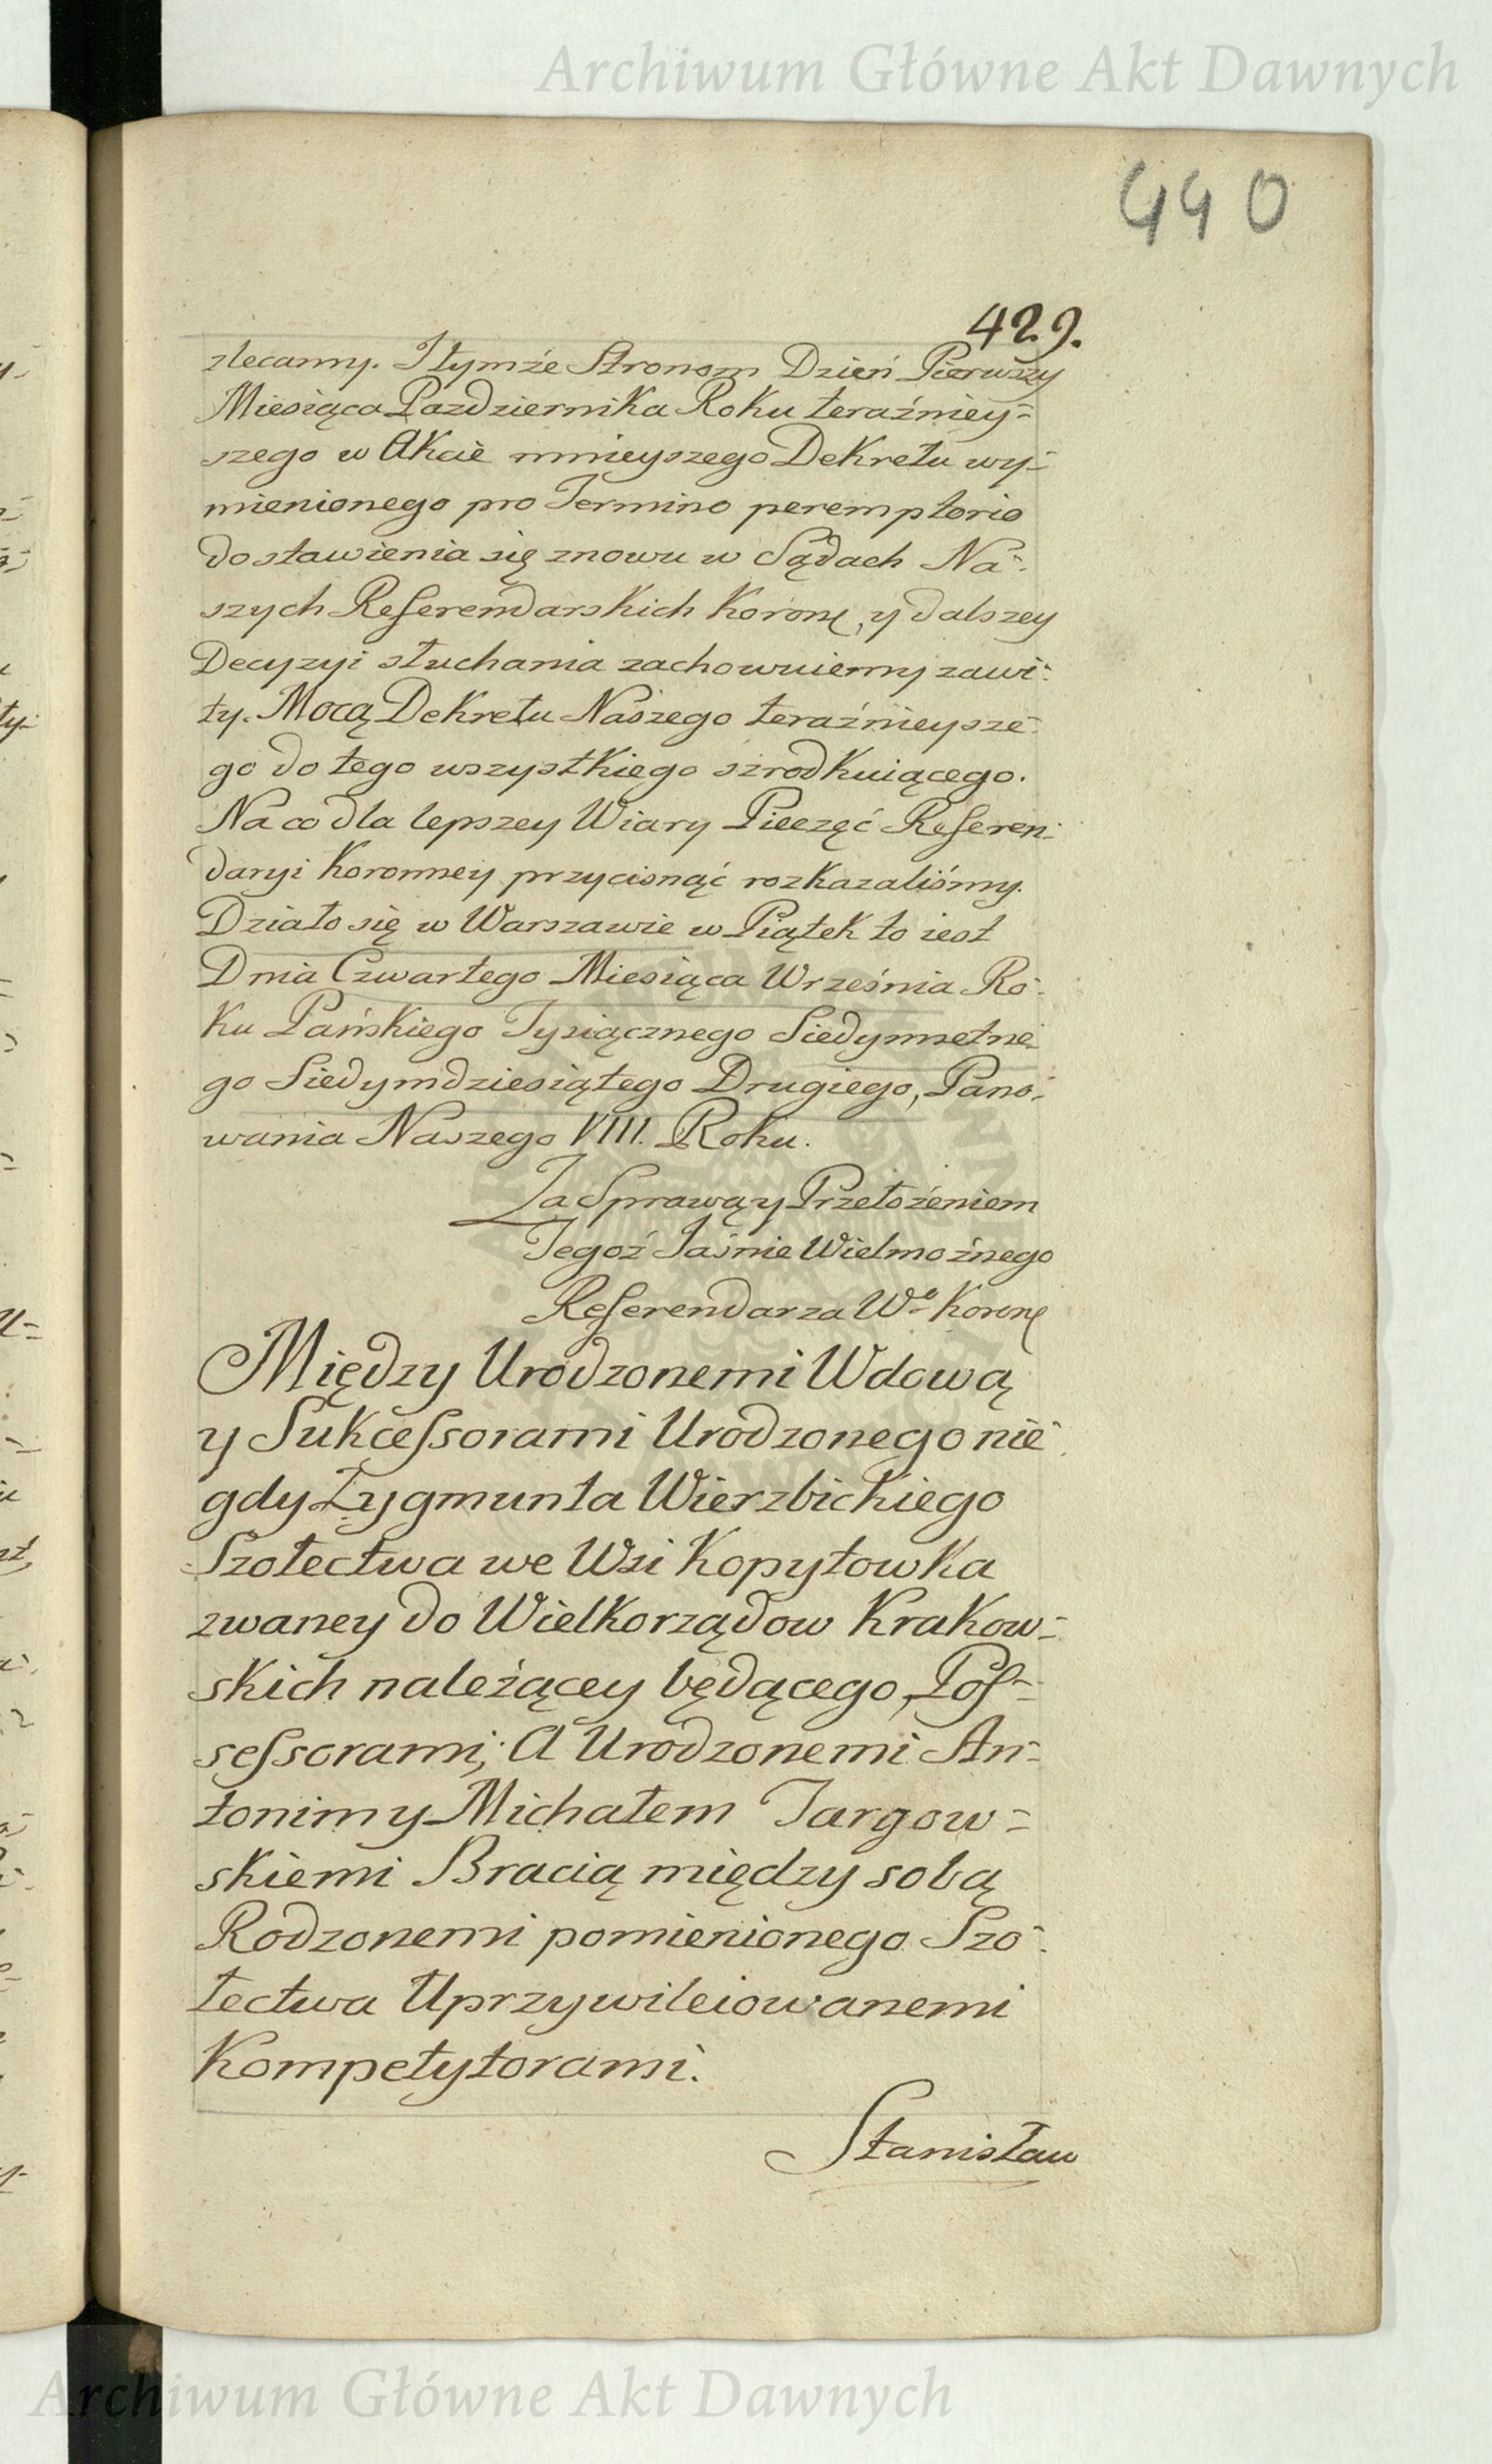 Archiwum Główne Akt Dawnych
440
429.
zlecamy. I tymże Stronom Dzień Pierwszy
Miesiąca Pazdziernika Roku teraźniey=
szego w Akcie ninieyszego Dekretu wy=
mienionego pro Termino peremptorio
do stawienia się znowu w Sądach Na=
szych Referendarskich Koronͤ, y dalszey
Decyzyi słuchania zachowuiemy zawi=
ty. Mocą Dekretu Naszego teraźnieysze=
go do tego wszystkiego szrodkuiącego.
Na co dla lepszey Wiary Pieczęć Referen=
daryi Koronney przycisnąć rozkazaliśmy.
Działo się w Warszawie w Piątek to iest
Dnia Czwartego Miesiąca Września Ro=
ku Pańskiego Tysiącznego Siedymsetne=
go Siedymdziesiątego Drugiego, Pano=
wania Naszego VIII. Roku.
Za Sprawą y Przełożeniem
Tegoż Jaśnie Wielmożnego
Referendarza Wo Koronͤ
Między Urodzonemi Wdową
y Sukcessorami Urodzonego nie=
gdy Zygmunta Wierzbickiego
Szołectwa we Wsi Kopytowka
zwaney do Wielkorządow Krakow=
skich należącey będącego, Pos=
sessorami; A Urodzonemi An=
tonim y Michałem Targow=
skiemi Bracią między sobą
Rodzonemi pomienionego Szo=
łectwa Uprzywileiowanemi
Kompetytorami.
Stanisław
Archiwum Główne Akt Dawnych